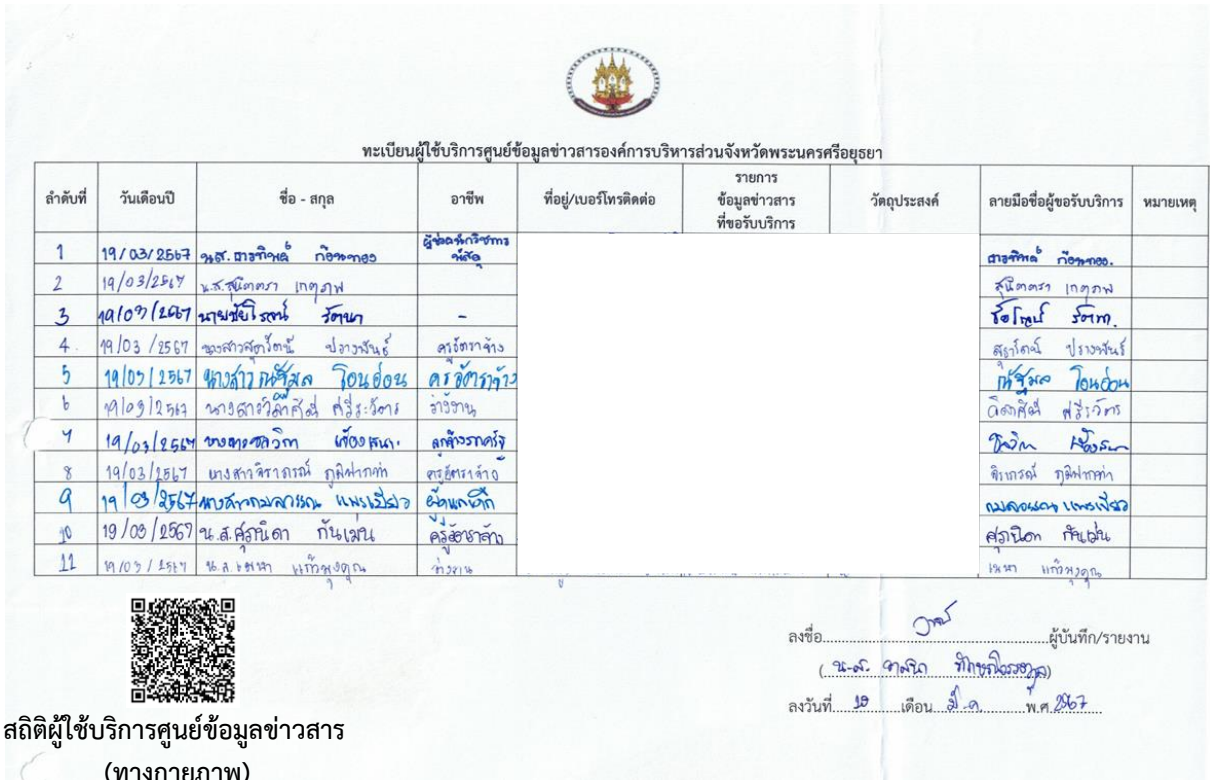 ทะเบียนผู้ใช้บริการศูนย์ข้อมูลข่าวสารองค์การบริหารส่วนจังหวัดพระนครศรีอยุธยา
ลำดับที่ วันเดือนปี ชื่อ - สกุล อาชีพ ที่อยู่/เบอร์โทรติดต่อ รายการ ข้อมูลข่าวสาร ที่ขอรับบริการ วัตถุประสงค์ ลายมือชื่อผู้ขอรับบริการ หมายเหตุ
1 19/03/2567 น.ส. ผู้ช่วยนักวิชาการพัสดุ
2 19/03/2567 น.ส.สุนิตตรา เกตุภาพ สุนิตตรา เกตุภาพ
3 19/03/2567 นายชัยโรจน์ รัตนา -
4. 19/03/2567 นางสาวสุดารัตน์ ปรางพันธ์ ครูอัตราจ้าง ปรางพันธ์
5 19/03/2567 นางสาว โอนอ่อน ครูอัตราจ้าง โอนอ่อน
6 19/03/2567 นางสาว ว่างงาน
7 19/03/2567
8 19/03/2567 นางสาวจิราภรณ์ ภูมิฝากท่า ครูอัตราจ้าง จิราภรณ์ ภูมิฝากท่า
9 19/03/2567 นางสาวกมลวรรณ แพรเขียว ผู้ดูแลเด็ก กมลวรรณ แพรเขียว
10 19/03/2567 น.ส.ศุภนิดา กันเม่น ครูอัตราจ้าง ศุภนิดา กันเม่น
11 19/03/2567 น.ส. แก้วพุงคุณ ว่างงาน แก้วพุงคุณ
ลงชื่อ ผู้บันทึก/รายงาน
(น.ส. )
ลงวันที่ 19 เดือน มี.ค. พ.ศ. 2567
สถิติผู้ใช้บริการศูนย์ข้อมูลข่าวสาร
(ทางกายภาพ)